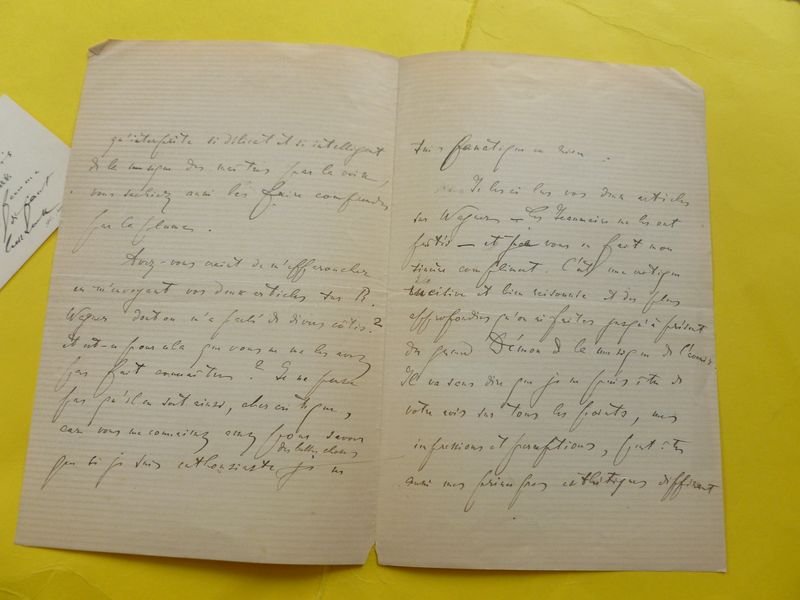 qu'interprète si délicat et si intelligent
de la musique des maîtres par la voix,
vous sachiez aussi les faire comprendre
par la plume.
Avez-vous craint de m'effaroucher
en m'envoyant vos deux articles sur R.
Wagner dont on m'a parlé de divers côtés?
Et est-ce pour cela que vous ne me les avez
pas fait connaître? Je ne pense
pas qu'il en soit ainsi, cher critique,
car vous me connaissez assez pour savoir
que si je suis enthousiaste des belles choses je ne
suis fanatique en rien.
Je les ai lus vos deux articles
sur Wagner — les Jeannaire me les ont
prêtés — et vous en fait mon
sincère compliment. C'est une critique
incisive et bien raisonnée et des plus
approfondies qu'on ait faites jusqu'à présent
du grand Démon de la musique de l'avenir.
Il va sans dire que je ne puis être de
votre avis sur tous les points, mes
impressions et perceptions, peut-être
aussi mes principes esthétiques diffèrent
femme